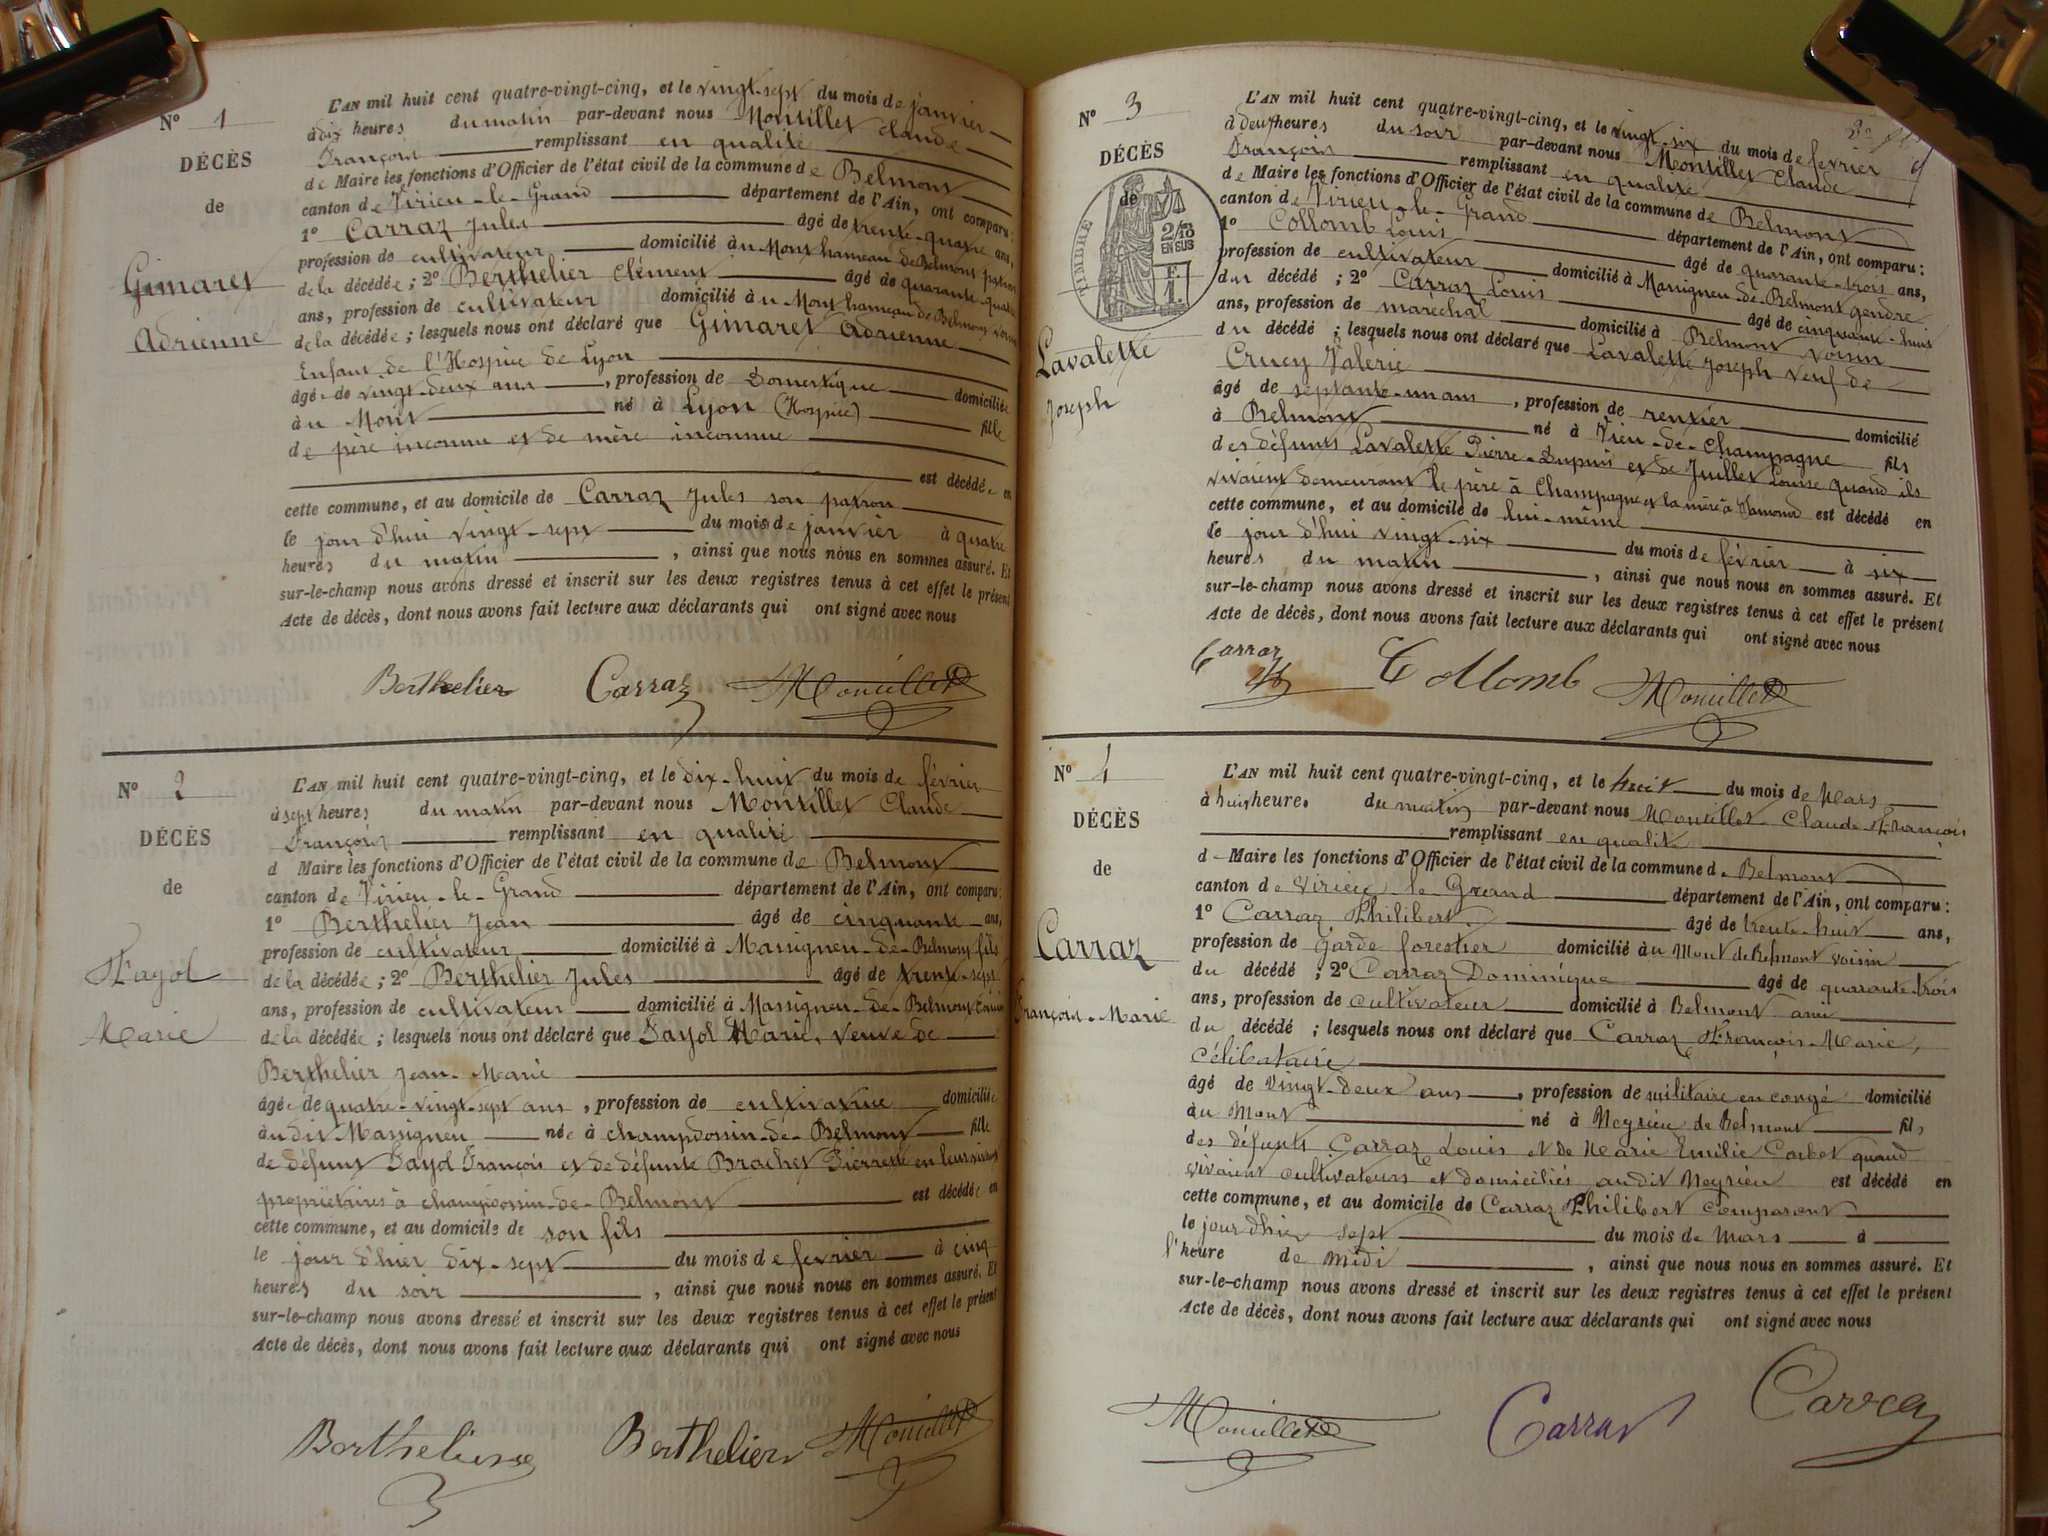 N° 1
DÉCÈS
de
Gimaret
Adrienne
L'AN mil huit cent quatre-vingt-cinq, et le vingt-sept du mois de janvier
à dix heures du matin par-devant nous Montillet Claude
François remplissant en qualité
de Maire les fonctions d'Officier de l'état civil de la commune de Belmont
canton de Virieu-le-Grand département de l'Ain, ont comparu:
1° Carraz Jules âgé de trente-quatre ans,
profession de cultivateur domicilié au Mont hameau de Belmont patron
de la décédée; 2° Berthelier Clément âgé de quarante-quatre
ans, profession de cultivateur domicilié au Mont hameau de Belmont voisin
de la décédée; lesquels nous ont déclaré que Gimaret Adrienne
Enfant de l'Hospice de Lyon
âgée de vingt-deux ans, profession de Domestique domiciliée
au Mont né à Lyon (Hospice) fille
de père inconnu et de mère inconnue
est décédée en
cette commune, et au domicile de Carraz Jules son patron
le jour d'hui vingt-sept du mois de janvier à quatre
heures du matin, ainsi que nous nous en sommes assuré. Et
sur-le-champ nous avons dressé et inscrit sur les deux registres tenus à cet effet le présent
Acte de décès, dont nous avons fait lecture aux déclarants qui ont signé avec nous
Berthelier Carraz Montillet
N° 2
DÉCÈS
de
Fayol
Marie
L'AN mil huit cent quatre-vingt-cinq, et le dix-huit du mois de février
à sept heures du matin par-devant nous Montillet Claude
François remplissant en qualité
d Maire les fonctions d'Officier de l'état civil de la commune de Belmont
canton de Virieu-le-Grand département de l'Ain, ont comparu:
1° Berthelier Jean âgé de cinquante ans,
profession de cultivateur domicilié à Massigneu-de-Belmont fils
de la décédée; 2° Berthelier Jules âgé de trente-sept
ans, profession de cultivateur domicilié à Massigneu-de-Belmont
de la décédée; lesquels nous ont déclaré que Fayol Marie, veuve de
Berthelier Jean-Marie
âgée de quatre-vingt-sept ans, profession de cultivatrice domiciliée
au dit Massigneu née à Champdossin-de-Belmont fille
de défunt Fayol François et de défunte Brachet Pierrette en leur vivant
propriétaires à Champdossin-de-Belmont est décédée en
cette commune, et au domicile de son fils
le jour d'hier dix-sept du mois de février à cinq
heures du soir, ainsi que nous nous en sommes assuré. Et
sur-le-champ nous avons dressé et inscrit sur les deux registres tenus à cet effet le présent
Acte de décès, dont nous avons fait lecture aux déclarants qui ont signé avec nous
Berthelier Berthelier Montillet
N° 3
DÉCÈS
de
TIMBRE
2/10
EN SUS
Lavalette
Joseph
L'AN mil huit cent quatre-vingt-cinq, et le vingt-six du mois de février
à deux heures du soir par-devant nous Montillet Claude
François remplissant en qualité
de Maire les fonctions d'Officier de l'état civil de la commune de Belmont
canton de Virieu-le-Grand département de l'Ain, ont comparu:
1° Collomb Louis âgé de quarante-trois ans,
profession de cultivateur domicilié à Massigneu-de-Belmont gendre
du décédé; 2° Carraz Louis âgé de cinquante-huit
ans, profession de maréchal domicilié à Belmont voisin
du décédé; lesquels nous ont déclaré que Lavalette Joseph veuf de
Crucy Valerie
âgé de septante-un ans, profession de rentier domicilié
à Belmont né à Vieu-de-Champagne fils
des défunts Lavalette Pierre-Dupuis et de Juillet Louise quand ils
vivaient demeurant le père à Champagne et la mère à est décédé en
cette commune, et au domicile de lui-même
le jour d'hui vingt-six du mois de février à six
heures du matin, ainsi que nous nous en sommes assuré. Et
sur-le-champ nous avons dressé et inscrit sur les deux registres tenus à cet effet le présent
Acte de décès, dont nous avons fait lecture aux déclarants qui ont signé avec nous
Carraz Collomb Montillet
N° 4
DÉCÈS
de
Carraz
François-Marie
L'AN mil huit cent quatre-vingt-cinq, et le huit du mois de Mars
à huit heures du matin par-devant nous Montillet Claude François
remplissant en qualité
de Maire les fonctions d'Officier de l'état civil de la commune de Belmont
canton de Virieu-le-Grand département de l'Ain, ont comparu:
1° Carraz Philibert âgé de trente-huit ans,
profession de garde forestier domicilié au Mont de Belmont voisin
du décédé; 2° Carraz Dominique âgé de quarante-trois
ans, profession de cultivateur domicilié à Belmont ami
du décédé; lesquels nous ont déclaré que Carraz François-Marie,
célibataire
âgé de vingt-deux ans, profession de militaire en congé domicilié
au Mont né à Neyrieu de Belmont fils
des défunts Carraz Louis et de Marie Emélie Corbet quand
vivaient cultivateurs et domiciliés audit Neyrieu est décédé en
cette commune, et au domicile de Carraz Philibert comparant
le jour d'hier sept du mois de Mars à
l'heure de midi, ainsi que nous nous en sommes assuré. Et
sur-le-champ nous avons dressé et inscrit sur les deux registres tenus à cet effet le présent
Acte de décès, dont nous avons fait lecture aux déclarants qui ont signé avec nous
Montillet Carraz Carraz